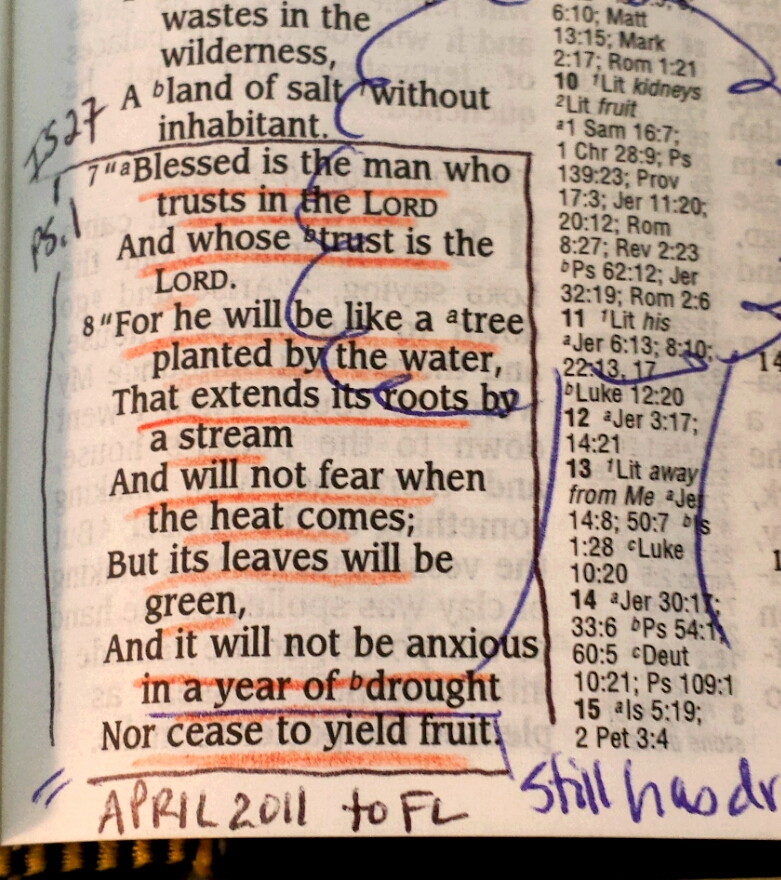 wastes in the
wilderness,
A ᵇland of salt without
inhabitant.
IS 27
PS. 1
7 "ᵃBlessed is the man who
trusts in the LORD
And whose ᵇtrust is the
LORD.
8 "For he will be like a ᵃtree
planted by the water,
That extends its roots by
a stream
And will not fear when
the heat comes;
But its leaves will be
green,
And it will not be anxious
in a year of ᵇdrought
Nor cease to yield fruit.
APRIL 2011 to FL
still has dr
6:10; Matt
13:15; Mark
2:17; Rom 1:21
10 ¹Lit kidneys
²Lit fruit
ᵃ1 Sam 16:7;
1 Chr 28:9; Ps
139:23; Prov
17:3; Jer 11:20;
20:12; Rom
8:27; Rev 2:23
ᵇPs 62:12; Jer
32:19; Rom 2:6
11 ¹Lit his
ᵃJer 6:13; 8:10;
22:13, 17
ᵇLuke 12:20
12 ᵃJer 3:17;
14:21
13 ¹Lit away
from Me ᵃJer
14:8; 50:7 ᵇIs
1:28 ᶜLuke
10:20
14 ᵃJer 30:17;
33:6 ᵇPs 54:1;
60:5 ᶜDeut
10:21; Ps 109:1
15 ᵃIs 5:19;
2 Pet 3:4
14
1